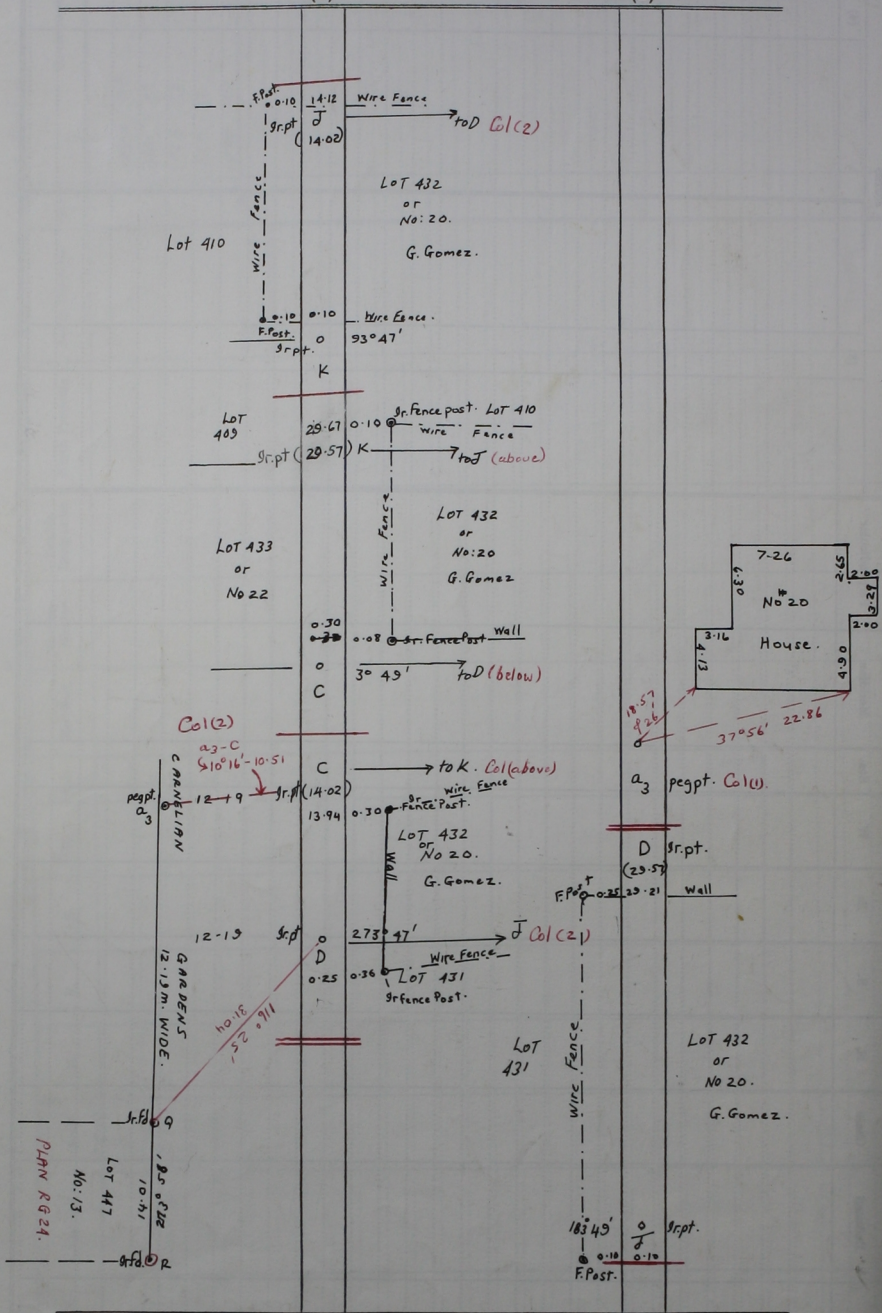 F.Post. 0.10 14.12 Wire Fence
Ir.pt J toD Col(2)
(14.02)
Wire Fence
LOT 432
or
No: 20.
G. Gomez.
Lot 410
0.10 0.10 Wire Fence.
F.Post.
Ir.pt. 0 93°47'
K
LOT
409
29.67 0.10 Ir. Fence post. LOT 410
Wire Fence
Ir.pt (29.57) K toJ (above)
Wire Fence
LOT 432
or
No:20
G. Gomez
LOT 433
or
No 22
0.30
0.08 Ir. Fence Post Wall
0 3° 49' toD (below)
C
Col(2)
a3-C
10°16'-10.51
C to K. Col(above)
pegpt. a3 12-19 Ir.pt (14.02)
13.94 0.30 Ir. Fence Post. Wire Fence
LOT 432
or
No 20.
G. Gomez.
Wall
CARNELIAN
GARDENS
12.19m. WIDE.
12-19 Ir.pt 0 273° 47' J Col(2)
D
0.25 0.36 Wire Fence
LOT 431
Ir fence Post.
31.04
116° 25'
Ir.Fd Q
10.41
LOT 447
No:13.
PLAN RG24.
Ir fd. R
7-26
6.30
2.65
2.00
3.29
2.00
No 20
House.
3.16
4.13
4.90
18.57
37°56' 22.86
a3 pegpt. Col(1)
D Ir.pt.
F.Post 0.25 29.21 Wall
Wire Fence
LOT
431
LOT 432
or
No 20.
G. Gomez.
183°49' 0 Ir.pt.
J
0.10 0.10
F.Post.